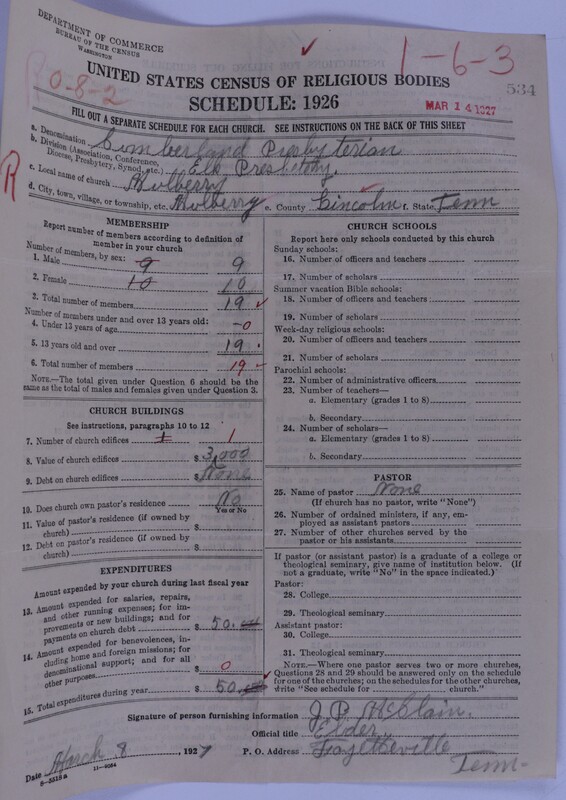 DEPARTMENT OF COMMERCE
BUREAU OF THE CENSUS
WASHINGTON
1-6-3
R 0-8-2
534
UNITED STATES CENSUS OF RELIGIOUS BODIES
SCHEDULE: 1926
MAR 14 1927
FILL OUT A SEPARATE SCHEDULE FOR EACH CHURCH. SEE INSTRUCTIONS ON THE BACK OF THIS SHEET
a. Denomination Cumberland Presbyterian
b. Division (Association, Conference, Diocese, Presbytery, Synod, etc.) Elk Presbetory,
R
c. Local name of church Mulberry
d. City, town, village, or township, etc. Mulberry e. County Lincoln f. State Tenn
MEMBERSHIP
Report number of members according to definition of
member in your church
Number of members, by sex:
1. Male 9 9
2. Female 10 10
3. Total number of members 19
Number of members under and over 13 years old:
4. Under 13 years of age 0
5. 13 years old and over 19
6. Total number of members 19
NOTE.—The total given under Question 6 should be the
same as the total of males and females given under Question 3.
CHURCH BUILDINGS
See instructions, paragraphs 10 to 12
7. Number of church edifices 1 1
8. Value of church edifices $ 3,000
9. Debt on church edifices $ None
10. Does church own pastor's residence No
Yes or No
11. Value of pastor's residence (if owned by
church) $
12. Debt on pastor's residence (if owned by
church) $
EXPENDITURES
Amount expended by your church during last fiscal year
13. Amount expended for salaries, repairs,
and other running expenses; for im-
provements or new buildings; and for
payments on church debt $ 50.
14. Amount expended for benevolences, in-
cluding home and foreign missions; for
denominational support; and for all
other purposes $ 0
15. Total expenditures during year $ 50.
CHURCH SCHOOLS
Report here only schools conducted by this church
Sunday schools:
16. Number of officers and teachers
17. Number of scholars
Summer vacation Bible schools:
18. Number of officers and teachers
19. Number of scholars
Week-day religious schools:
20. Number of officers and teachers
21. Number of scholars
Parochial schools:
22. Number of administrative officers
23. Number of teachers—
a. Elementary (grades 1 to 8)
b. Secondary
24. Number of scholars—
a. Elementary (grades 1 to 8)
b. Secondary
PASTOR
25. Name of pastor None
(If church has no pastor, write "None")
26. Number of ordained ministers, if any, em-
ployed as assistant pastors
27. Number of other churches served by the
pastor or his assistants
If pastor (or assistant pastor) is a graduate of a college or
theological seminary, give name of institution below. (If
not a graduate, write "No" in the space indicated.)
Pastor:
28. College
29. Theological seminary
Assistant pastor:
30. College
31. Theological seminary
NOTE.—Where one pastor serves two or more churches,
Questions 28 and 29 should be answered only on the schedule
for one of the churches; on the schedules for the other churches,
write "See schedule for church."
Signature of person furnishing information J. P. McClain.
Official title Elder,
Date March 8, 1927 P. O. Address Fayetteville
Tenn.
8-3318a 11-9084